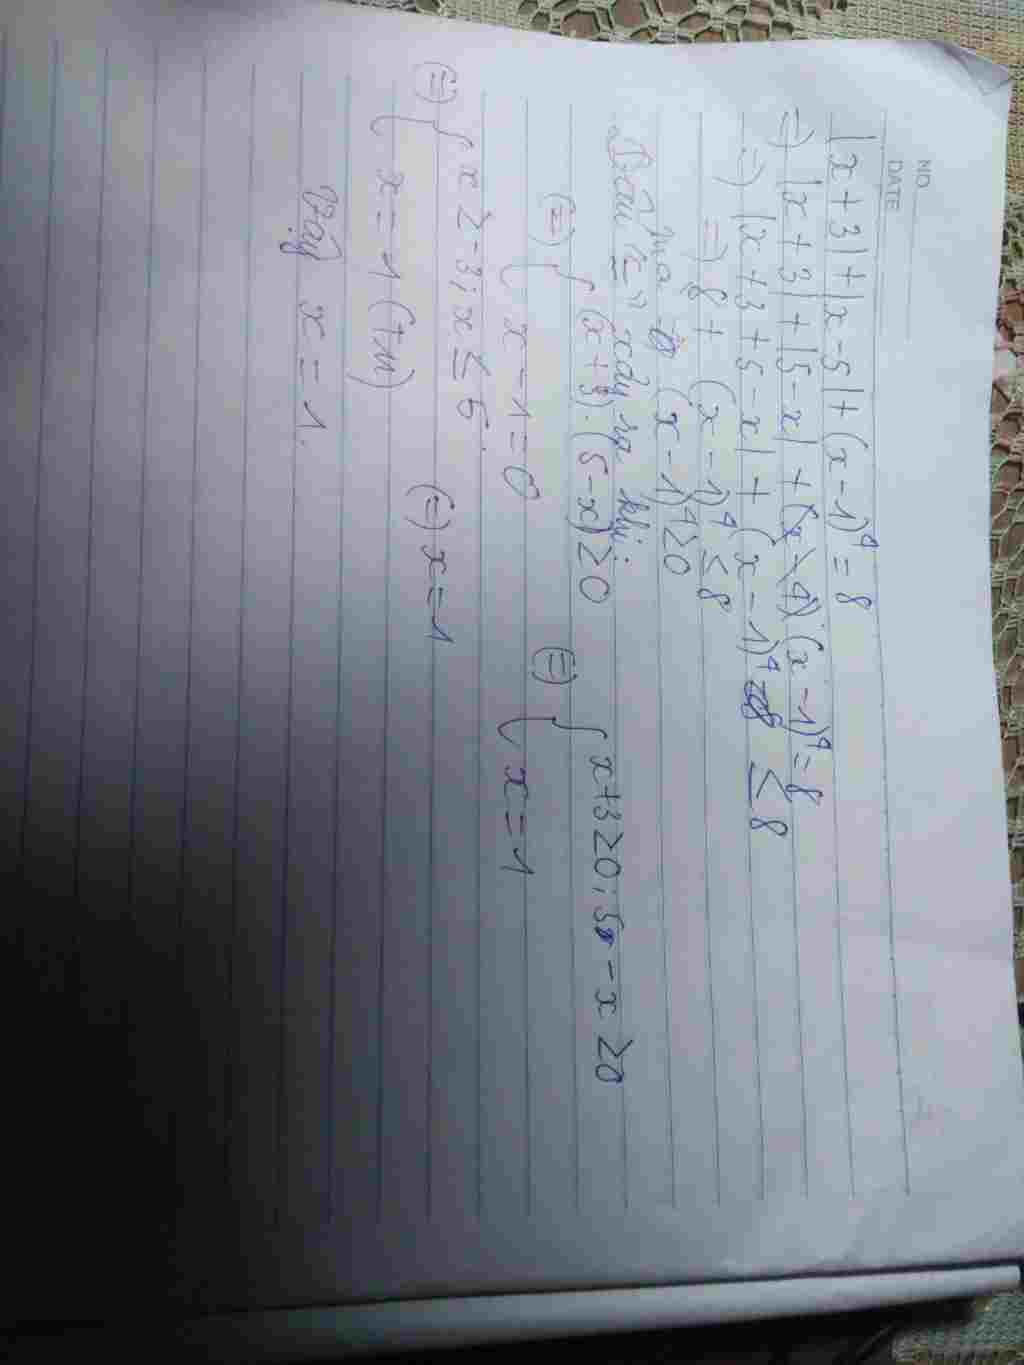 NO.
DATE
|x+3|+|x-5|+(x-1)⁴=8
=) |x+3|+|5-x|+(x-1)⁴=8
=) |x+3+5-x|+(x-1)⁴ ≤ 8
=) 8+(x-1)⁴ ≤ 8
mà (x-1)⁴ ≥ 0
Dấu "=" xảy ra khi:
(=) { (x+3).(5-x) ≥ 0 (=) { x+3 ≥ 0; 5-x ≥ 0
x-1=0 x=1
(=) { x ≥ -3; x ≤ 5
x=1 (TM) (=) x=1
Vậy x=1.